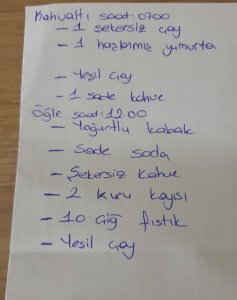 Kahvaltı saat:0700
- 1 şekersiz çay
- 1 haşlanmış yumurta
- Yeşil çay
- 1 sade kahve
Öğle saat:1200
- Yoğurtlu kabak
- Sade soda
- Şekersiz kahve
- 2 kuru kayısı
- 10 çiğ fıstık
- Yeşil çay